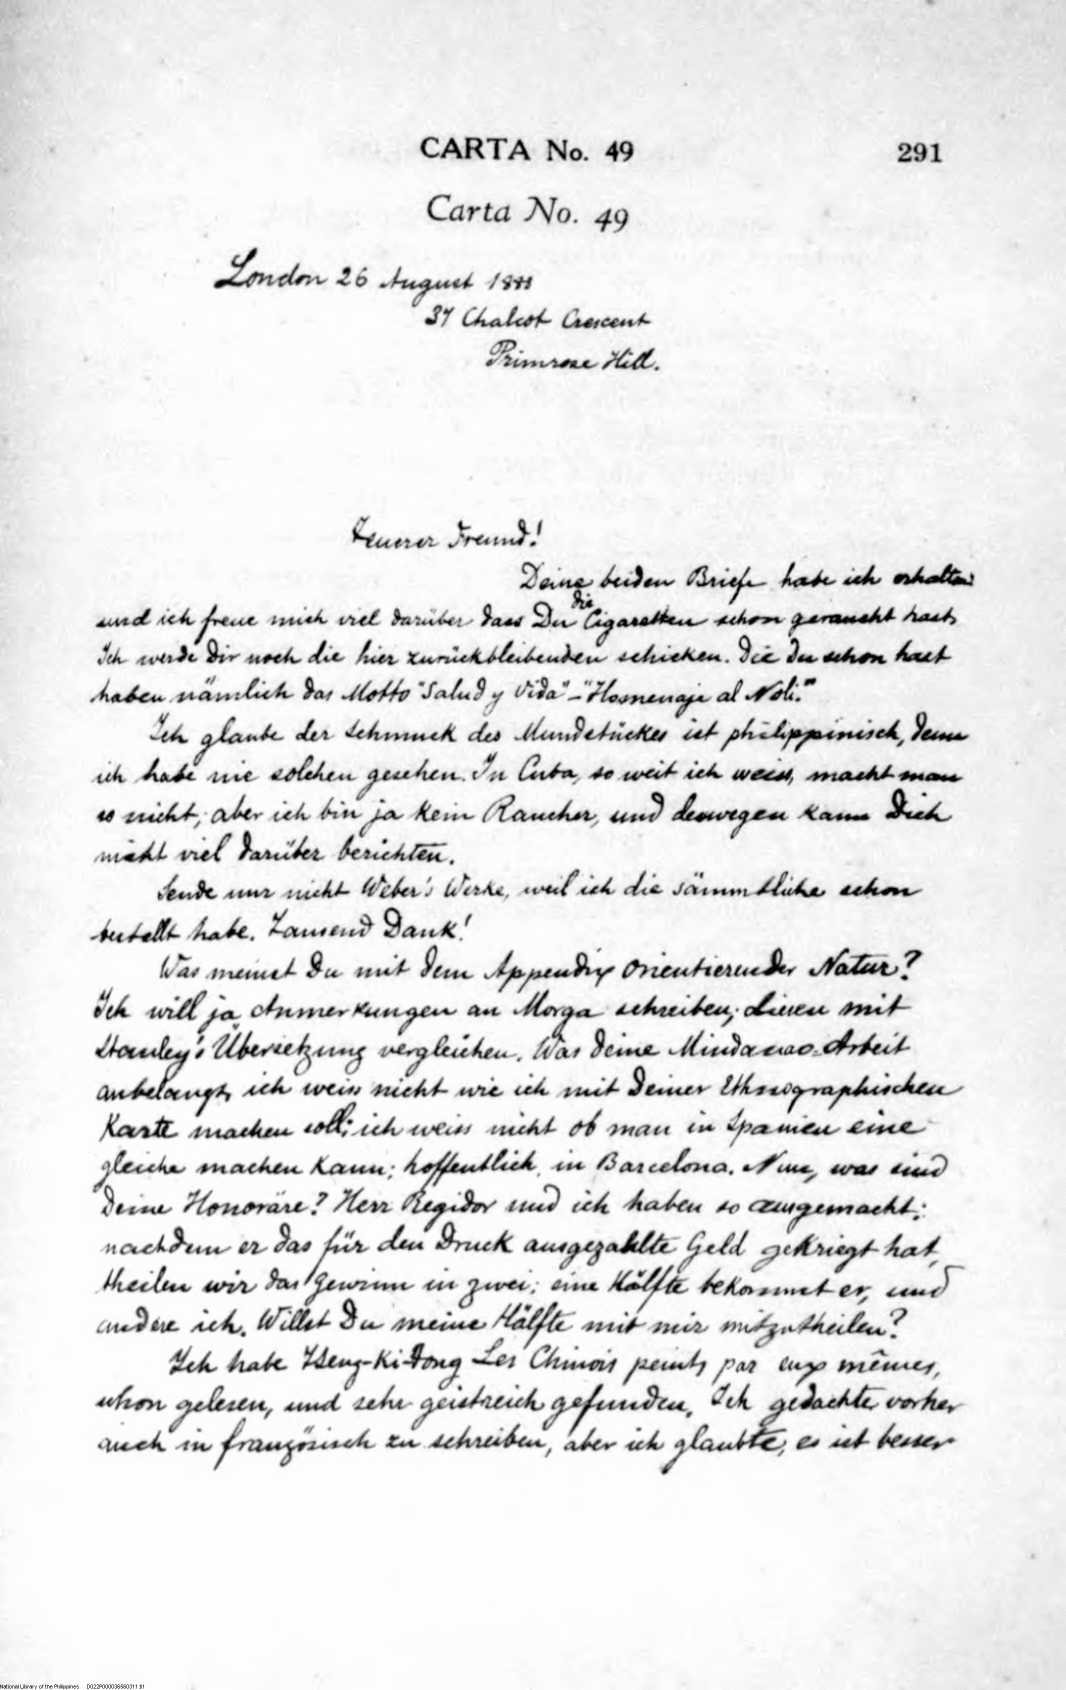 CARTA No. 49 291
Carta No. 49
London 26 August 1888
37 Chalcot Crescent
Primrose Hill.
Teuerer Freund!
Deine beiden Briefe habe ich erhalten
die
und ich freue mich viel darüber dass Du Cigaretten schon geraucht hast,
Ich werde Dir noch die hier zurückbleibenden schicken. Die Du schon hast
haben nämlich das Motto "Salud y Vida" – "Homenaje al Noli."
Ich glaube der Schmuck des Mundstückes ist philippinisch, denn
ich habe nie solchen gesehen. In Cuba, so weit ich weiss, macht man
es nicht; aber ich bin ja kein Raucher, und deswegen kann Dich
nicht viel darüber berichten.
Sende nur nicht Weber's Werke, weil ich die sämmtliche schon
bestellt habe. Tausend Dank!
Was meinst Du mit dem Appendix orientierender Natur?
Ich will ja Anmerkungen an Morga schreiben; diesen mit
Stanley's Übersetzung vergleichen. Was deine Mindanao-Arbeit
anbelangt, ich weiss nicht wie ich mit Deiner Ethnographischen
Karte machen soll; ich weiss nicht ob man in Spanien eine
gleiche machen kann; hoffentlich in Barcelona. Nun, was sind
Deine Honoräre? Herr Regidor und ich haben so ausgemacht:
nachdem er das für den Druck ausgezahlte Geld gekriegt hat,
theilen wir das Gewinn in zwei: eine Hälfte bekommt er, und
andere ich. Willst Du meine Hälfte mit mir mitzutheilen?
Ich habe Tseng-Ki-Tong Les Chinois peints par eux mêmes,
schon gelesen, und sehr geistreich gefunden. Ich gedachte vorher
auch in französisch zu schreiben, aber ich glaubte, es ist besser
National Library of the Philippines